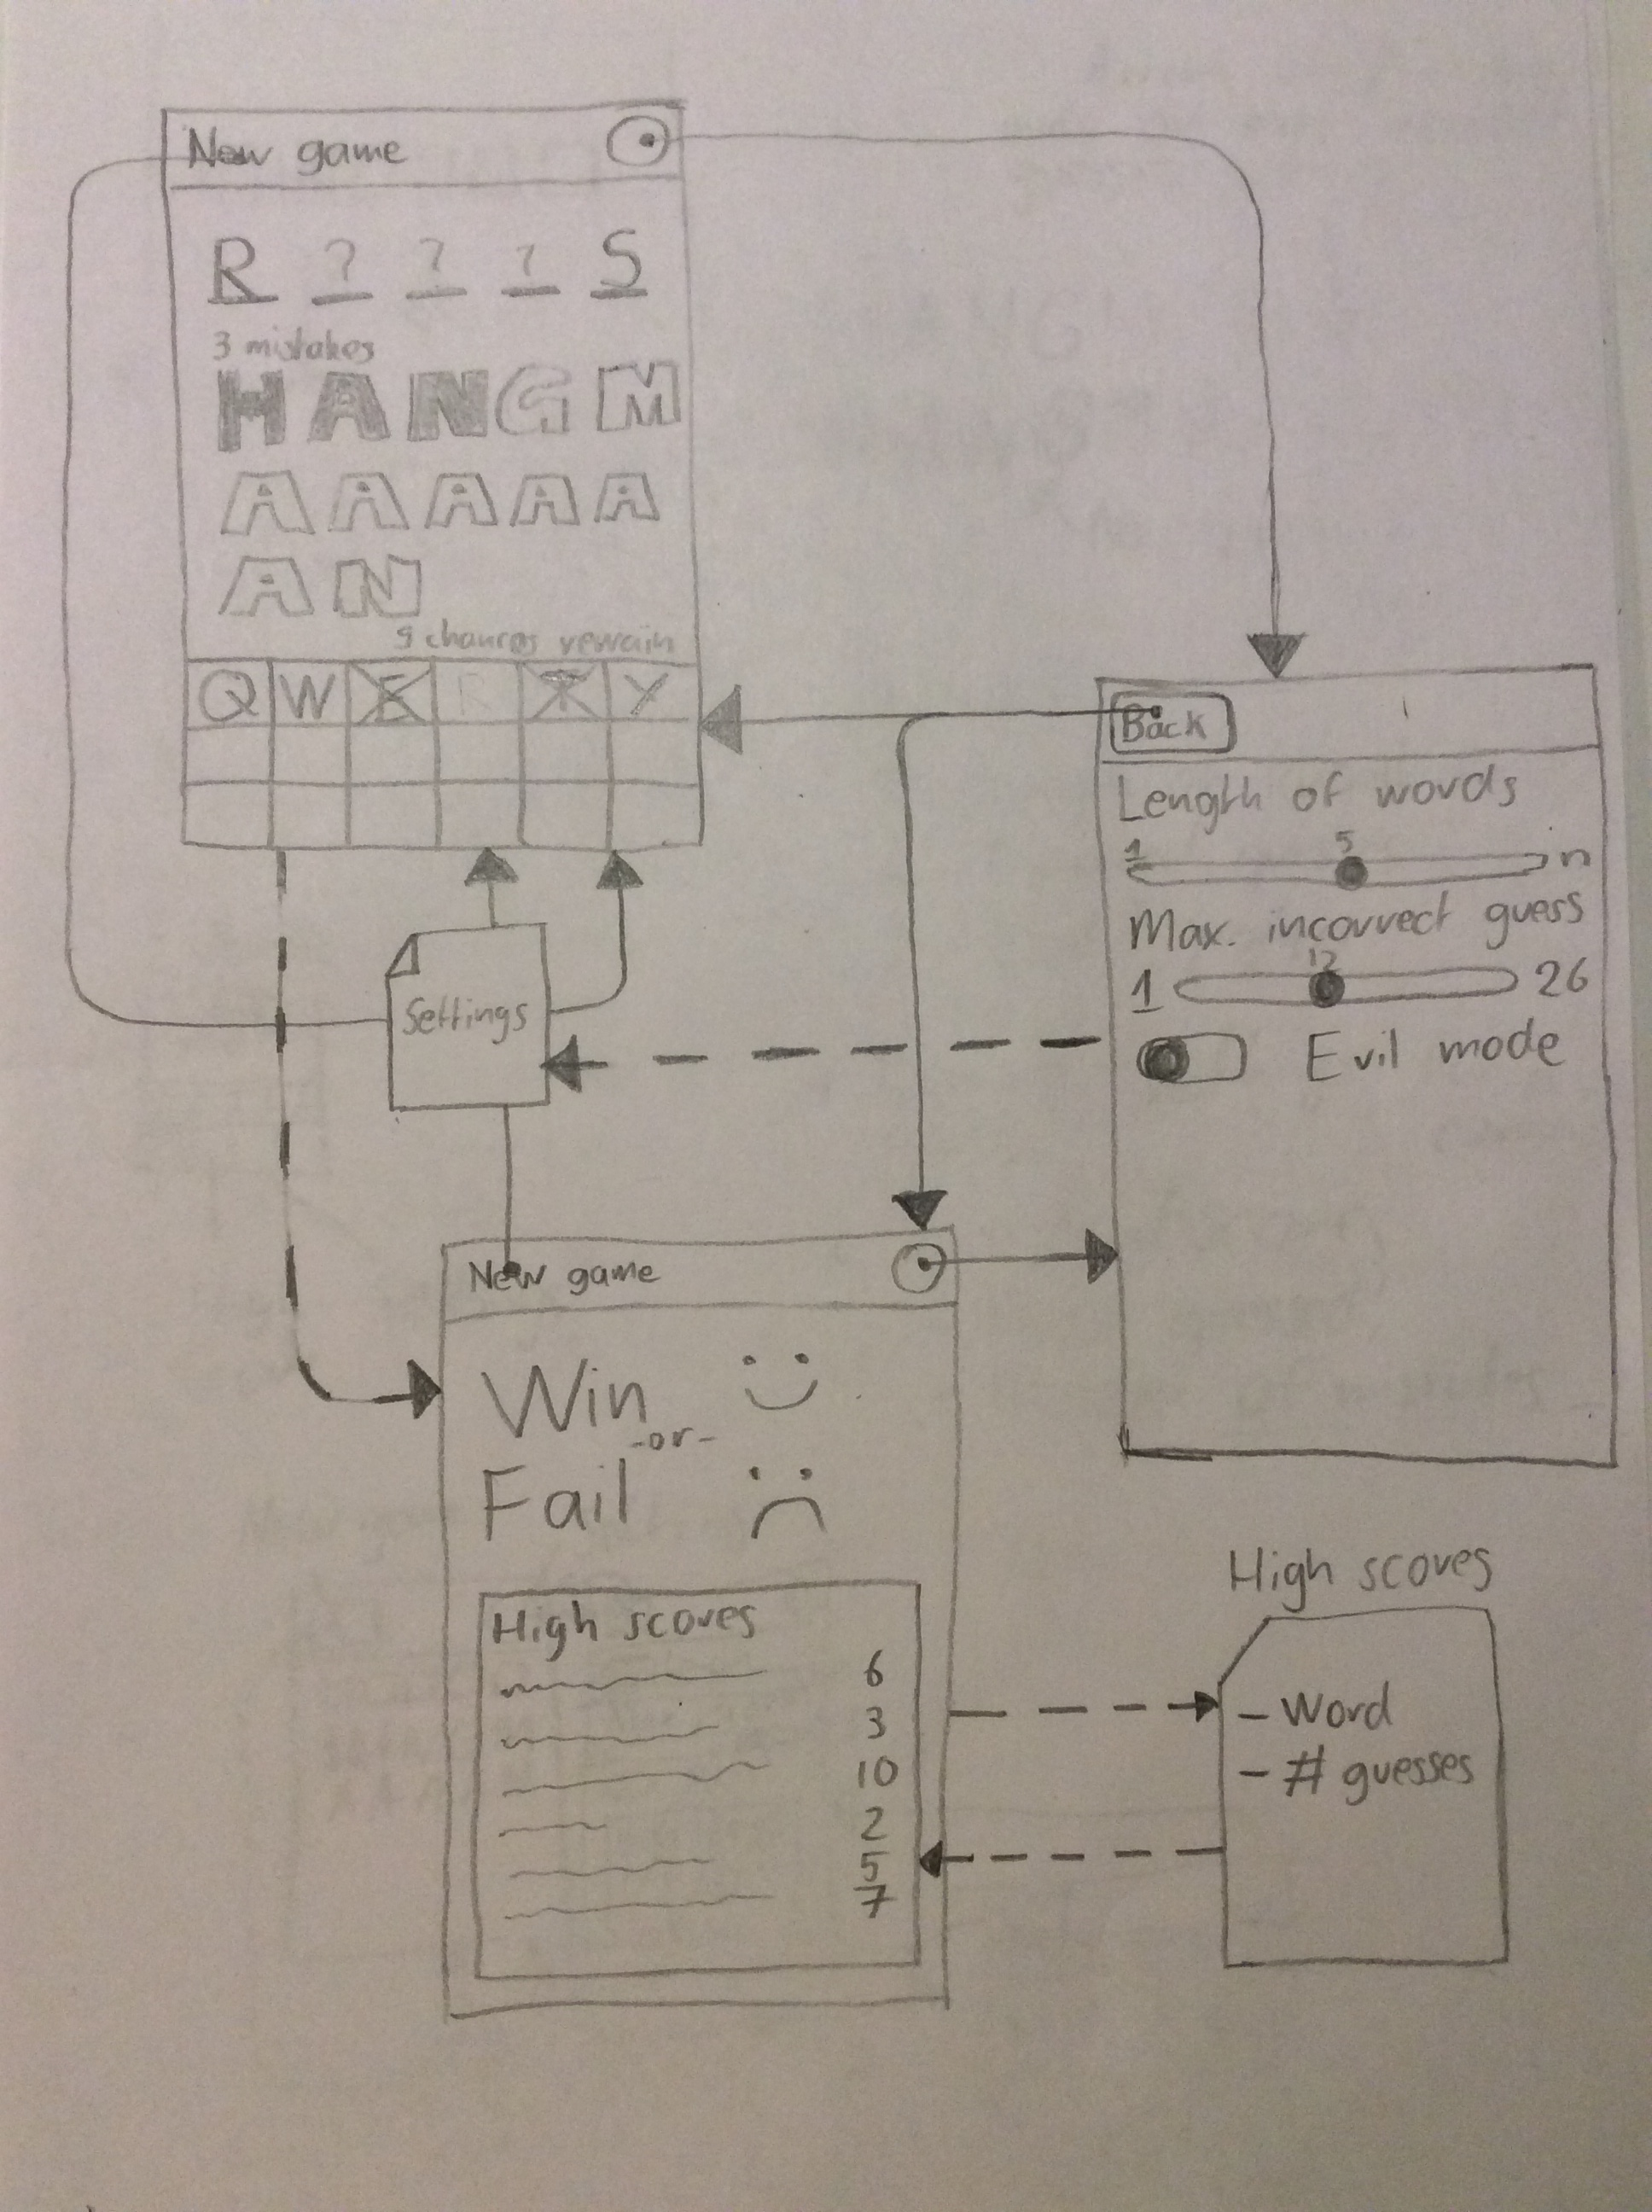 New game
R ? ? ? S
3 mistakes
HANGM
AAAAA
AN
9 chances remain
Q W E R T Y
Settings
Back
Length of words
1 5 n
Max. incorrect guess
1 12 26
Evil mode
New game
Win :)
-or-
Fail :(
High scores
6
3
10
2
5
7
High scores
- Word
- # guesses